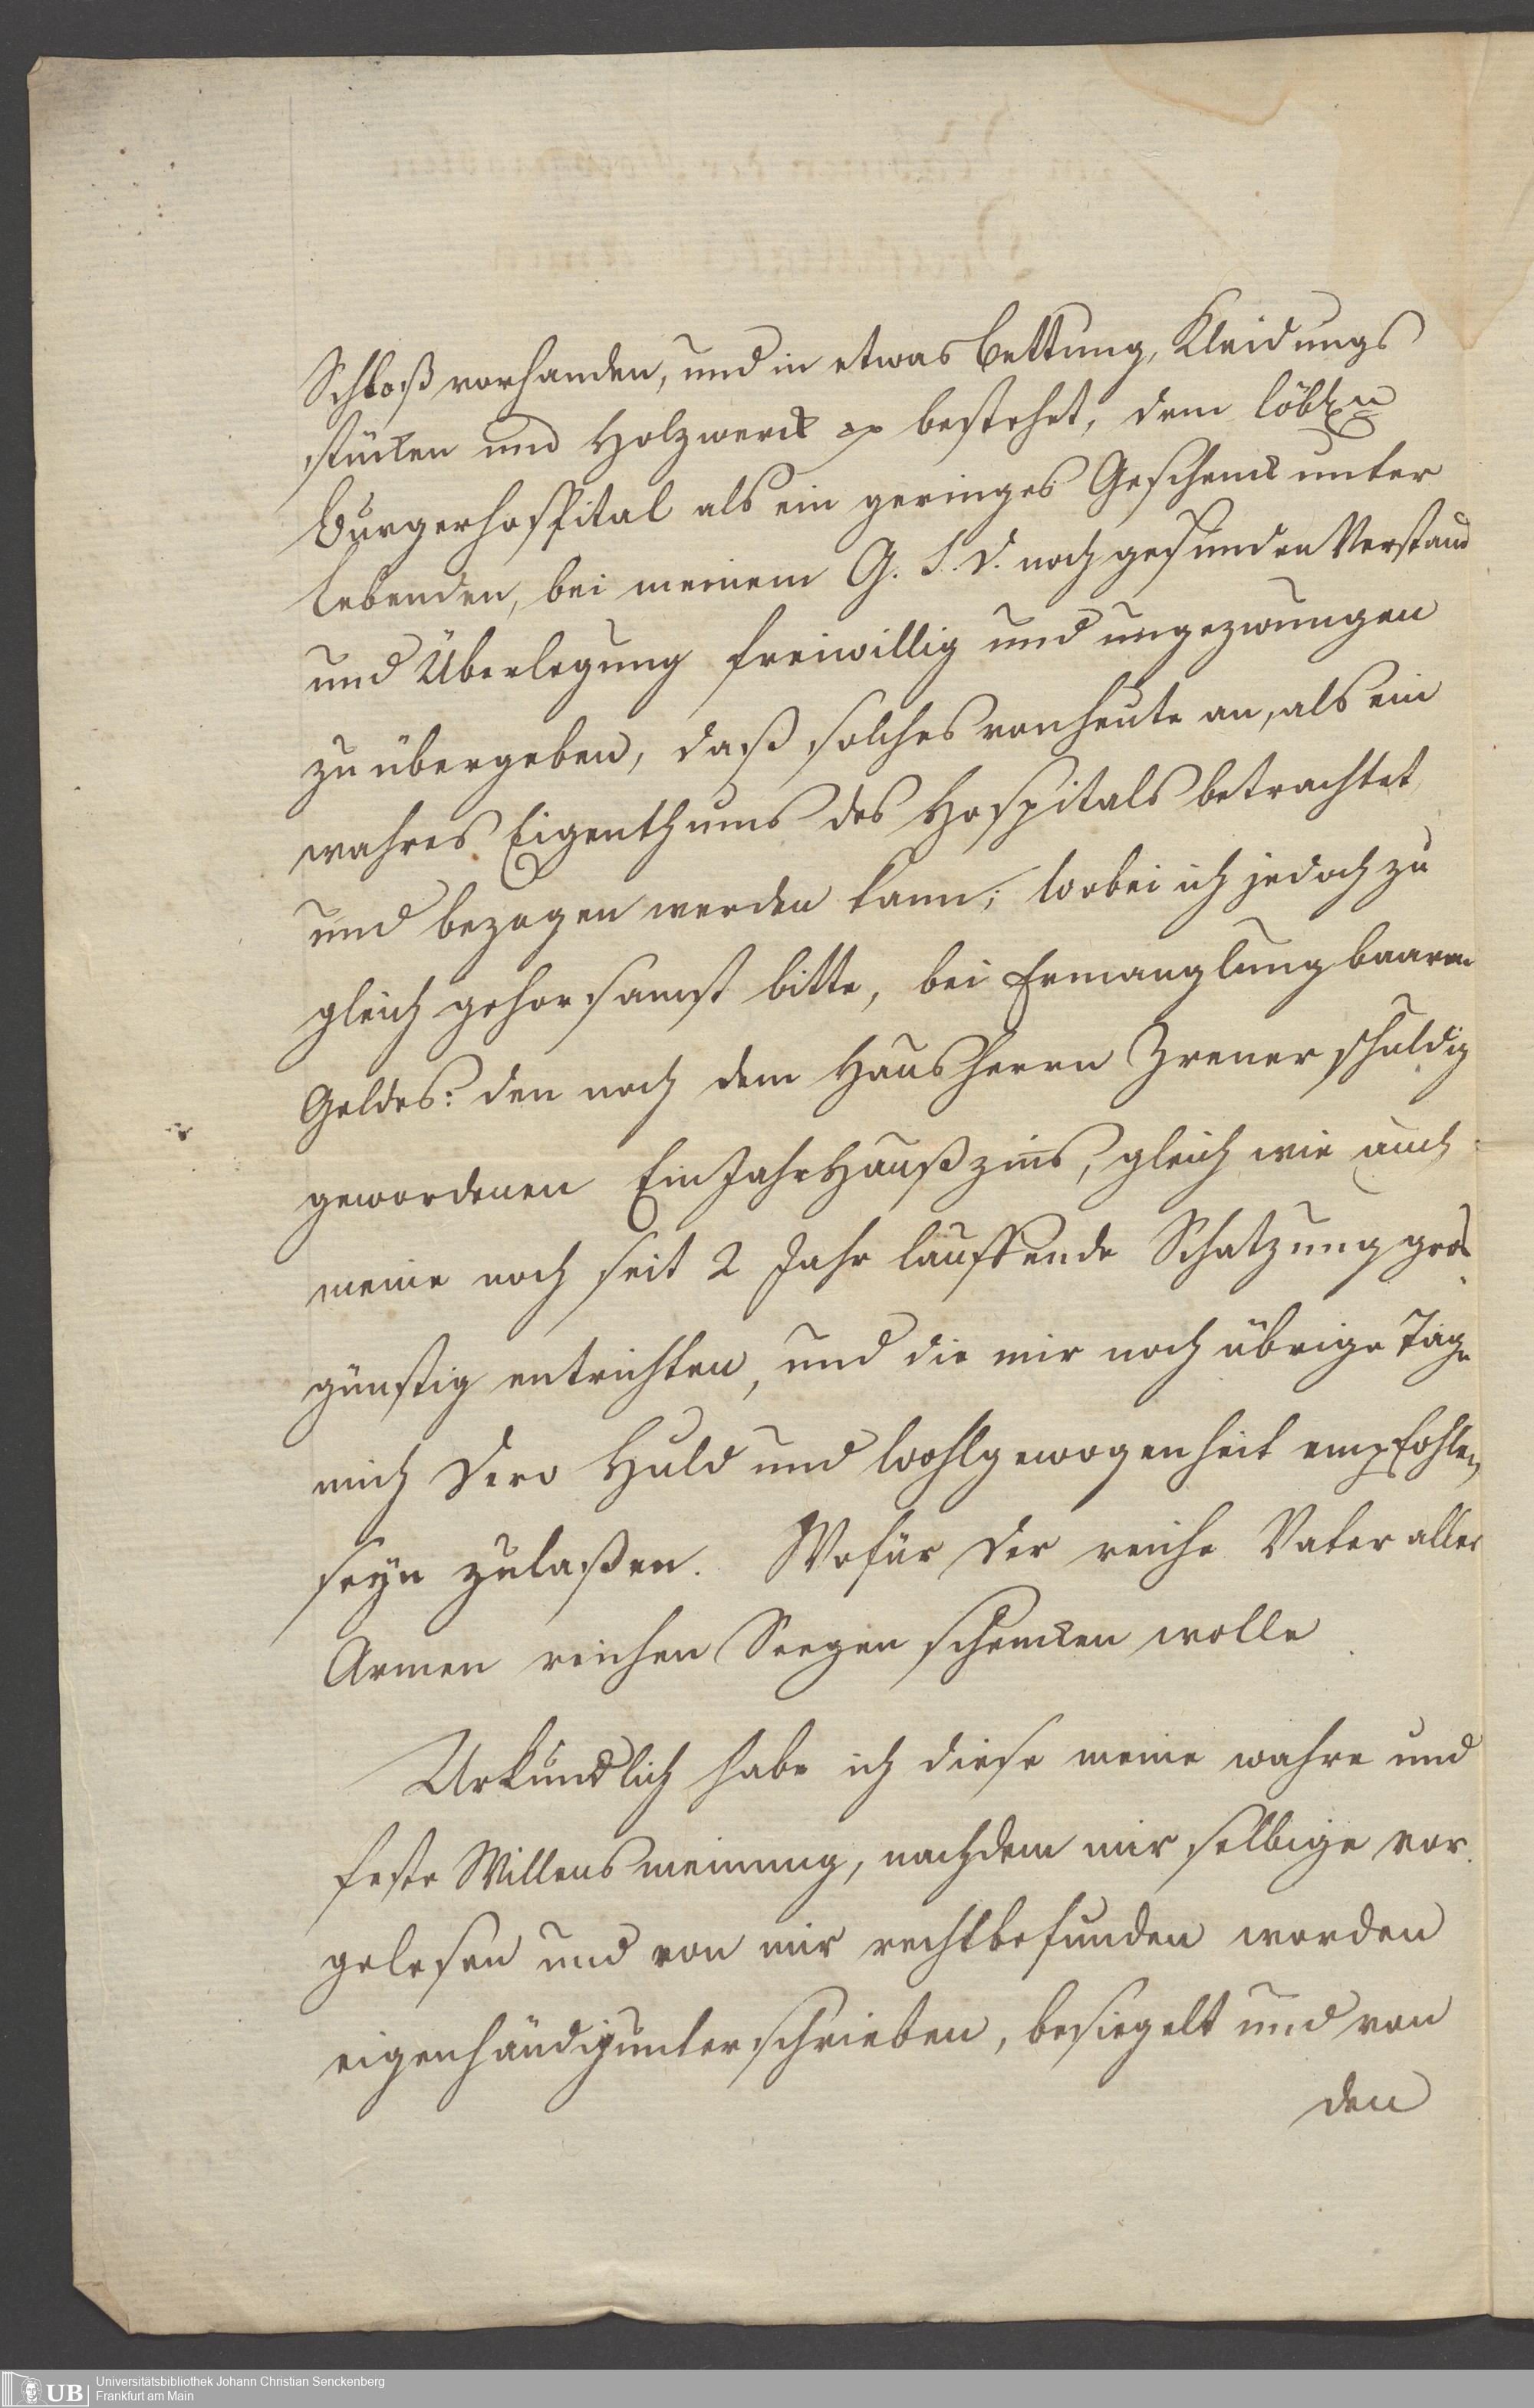 Schloß vorhanden, und in etwas Bettung, Kleidungs
stücken und Holzwerck pp bestehet, dem löbln
Burgerhospital als ein geringes Geschenck unter
Lebenden, bei meinem G. S. D. noch gesunden Verstand
und Überlegung freiwillig und ungezwungen
zu übergeben, daß solches von heute an, als ein
wahres Eigenthums des Hospitals betrachtet
und bezogen werden kann; wobei ich jedoch zu
gleich gehorsamst bitte, bei Ermanglung baaren
Geldes: den noch dem Hausherrn schuldig
gewordenen Ein Jahr Haußzins, gleich wie auch
meine noch seit 2 Jahr lauffende Schatzung gros
günstig entrichten, und die mir noch übrige Tage
mich Dero Huld und Wohlgewogenheit empfohlen
seyn zulaßen. Wofür der reiche Vater aller
Armen reichen Seegen schencken wolle
Urkundlich habe ich diese meine wahre und
feste Willensmeinung, nachdem mir selbige vor
gelesen und von mir recht befunden worden
eigenhändig unterschrieben, besiegelt und von
den
UB
Universitätsbibliothek Johann Christian Senckenberg
Frankfurt am Main